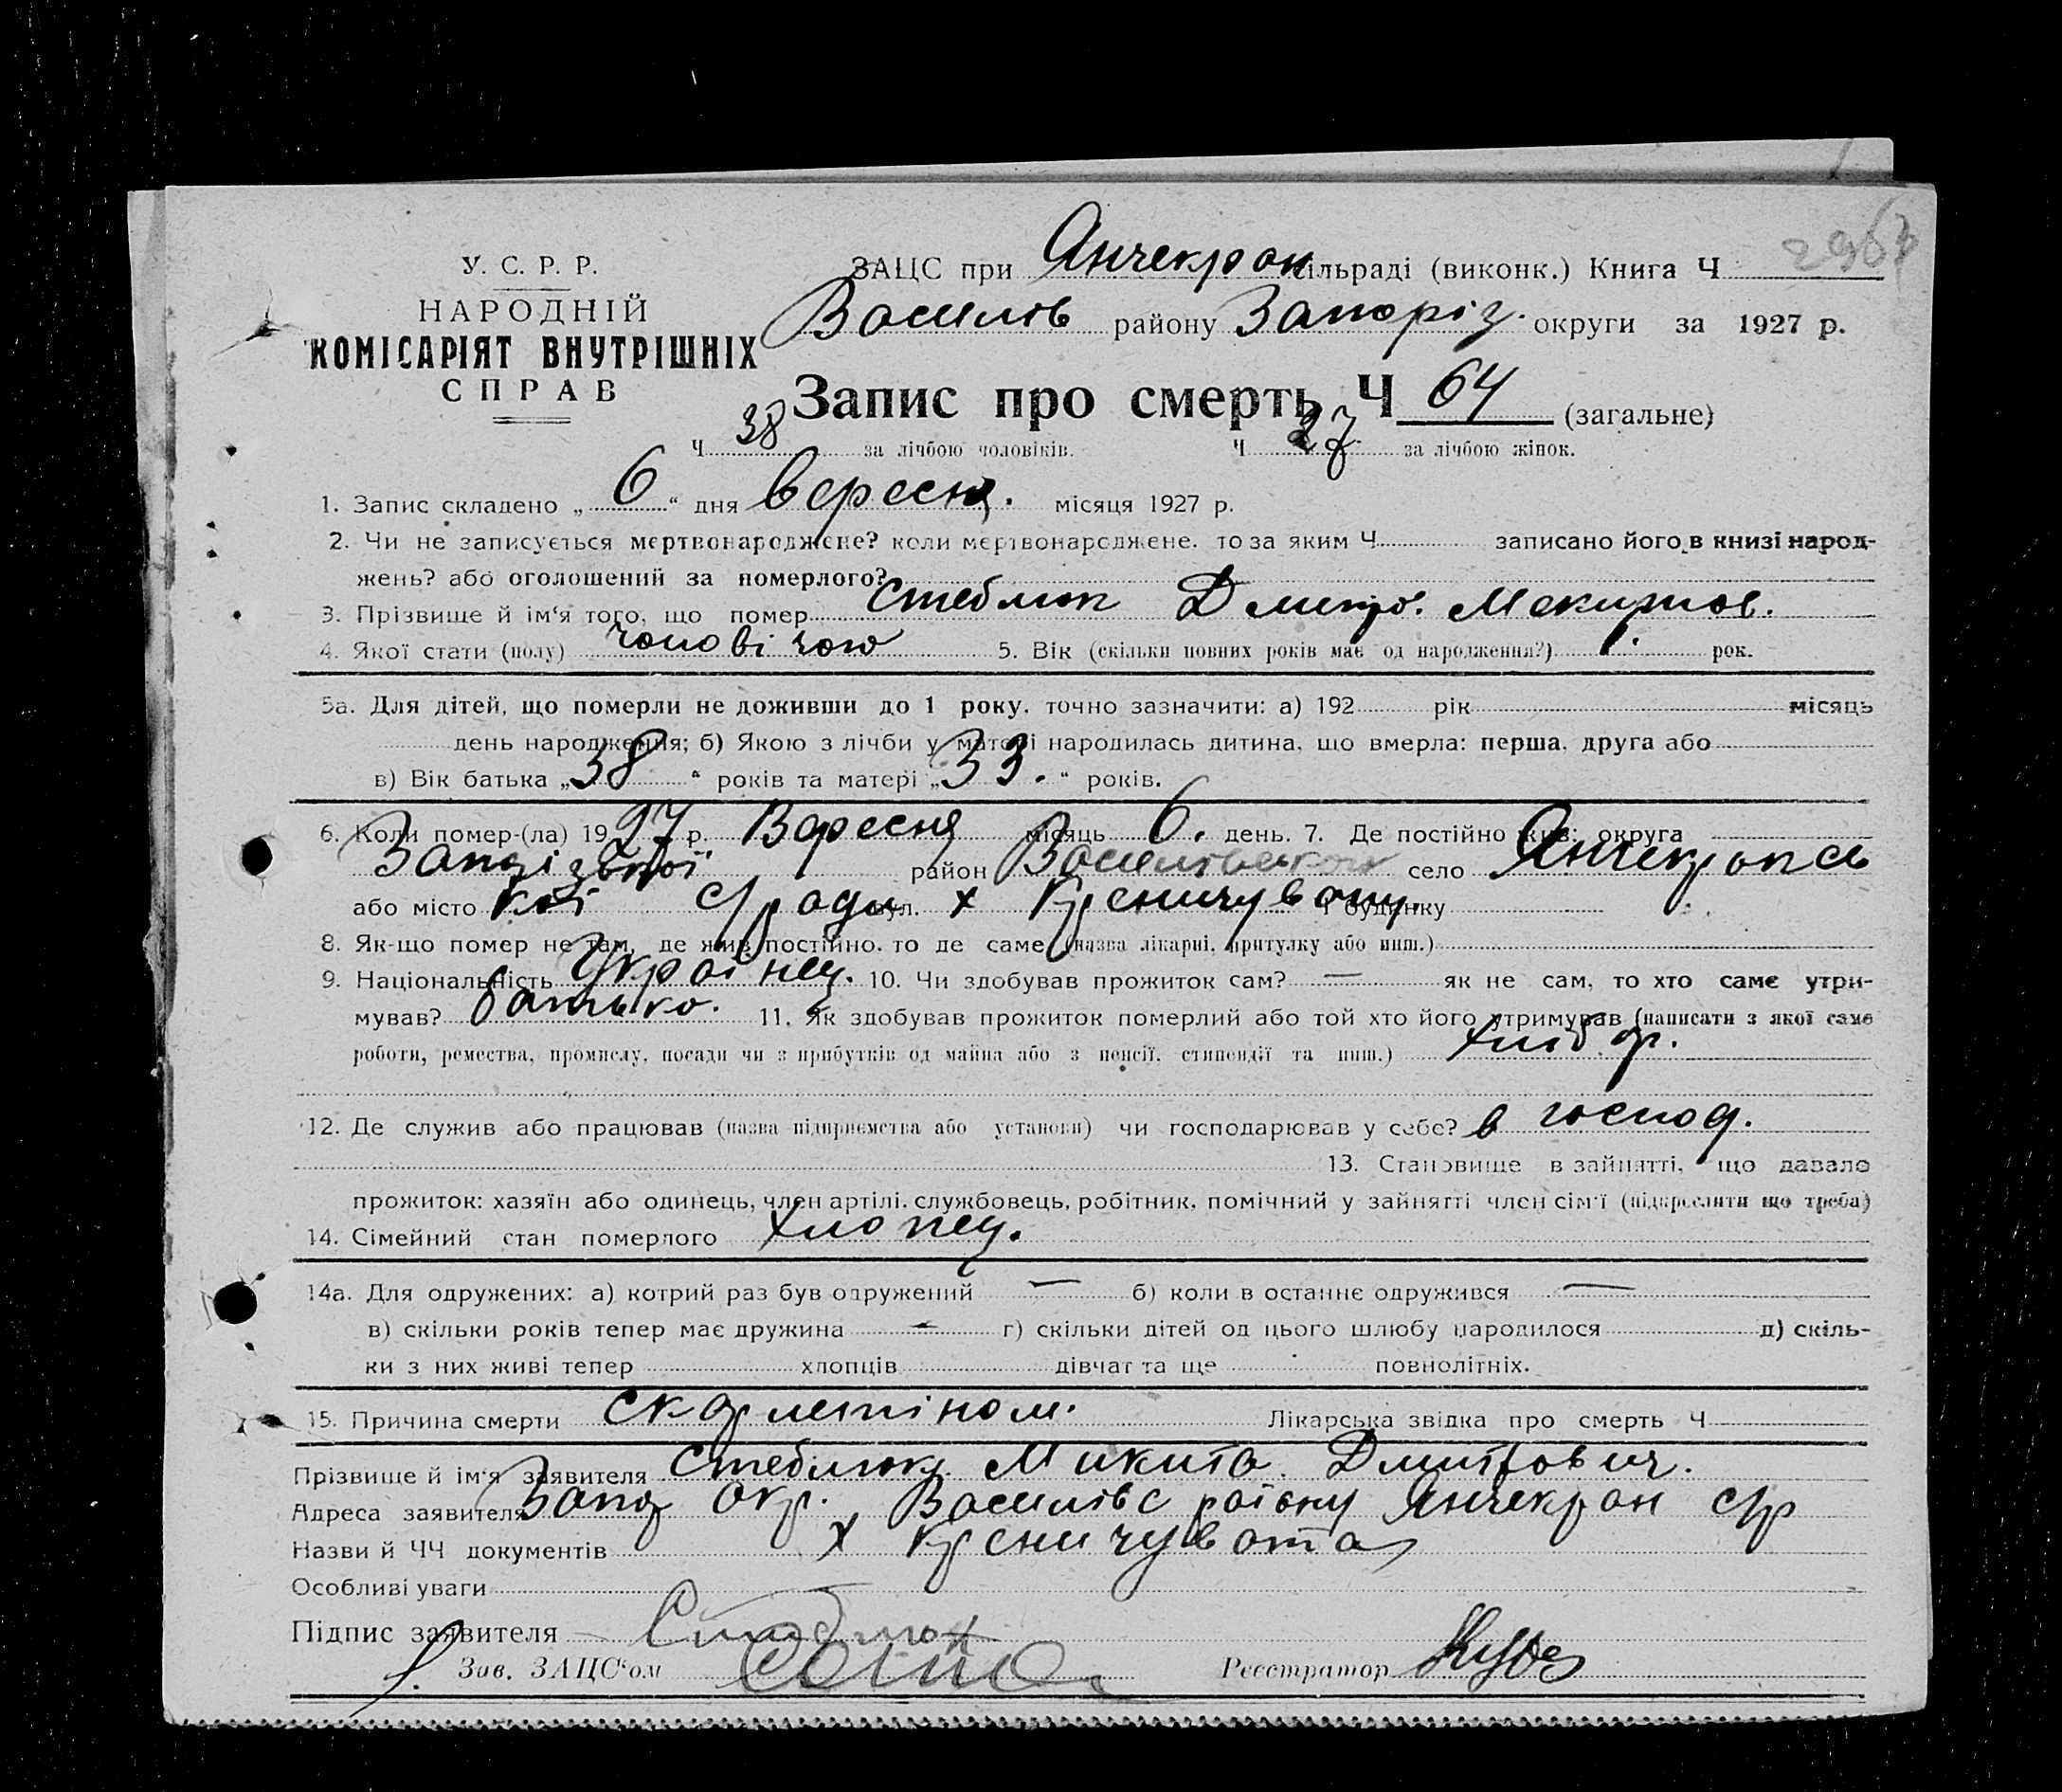 2967
У. С. Р. Р.
НАРОДНІЙ
КОМІСАРІЯТ ВНУТРІШНІХ
СПРАВ
ЗАЦС при Янчекрон сільраді (виконк.) Книга Ч
Василів району Запоріз. округи за 1927 р.
Запис про смерть Ч 64 (загальне)
Ч 38 за лічбою чоловіків. Ч 27 за лічбою жінок.
1. Запис складено „ 6 “ дня вересня. місяця 1927 р.
2. Чи не записується мертвонароджене? коли мертвонароджене. то за яким Ч записано його в книзі народ-
жень? або оголошений за померлого?
3. Прізвище й ім‘я того, що помер Стеблюк Дмитро. Микитов.
4. Якої стати (полу) чоловічою 5. Вік (скільки повних років має од народження?) 1. рок.
5а. Для дітей, що померли не доживши до 1 року. точно зазначити: а) 192 рік місяць
день народження; б) Якою з лічби у матері народилась дитина, що вмерла: перша, друга або
в) Вік батька „ 38 “ років та матері „ 33. “ років.
6. Коли помер-(ла) 1927 р. Вересня місяць 6. день. 7. Де постійно жив: округа
Запорізької район Василівського село Янчекронсь
або місто кої с/ради вул. х Креничувату. Ч будинку
8. Як-що помер не там, де жив постійно. то де саме (назва лікарні, притулку або инш.)
9. Національність Українец. 10. Чи здобував прожиток сам? — як не сам, то хто саме утри-
мував? батько. 11. Як здобував прожиток померлий або той хто його утримував (написати з якої саме
роботи, ремества, промислу, посади чи з прибутків од майна або з пенсії, стипендії та инш.) хлібор.
12. Де служив або працював (назва підприємства або установи) чи господарював у себе? в господ.
13. Становище в зайнятті, що давало
прожиток: хазяїн або одинець, член артілі, службовець, робітник, помічний у зайнятті член сім‘ї (підкреслити що треба)
14. Сімейний стан померлого хлопец.
14а. Для одружених: а) котрий раз був одружений — б) коли в останнє одружився —
в) скільки років тепер має дружина — г) скільки дітей од цього шлюбу народилося д) скіль-
ки з них живі тепер хлопців дівчат та ще повнолітніх.
15. Причина смерти скарлетіном. Лікарська звідка про смерть Ч
Прізвище й ім‘я заявителя Стеблюк Микита Дмитрович.
Адреса заявителя Запор окр. Василівс району Янчекрон с/р
Назви й ЧЧ документів х Креничувата
Особливі уваги
Підпис заявителя Стеблюк
Зав. ЗАЦС‘ом Реєстратор